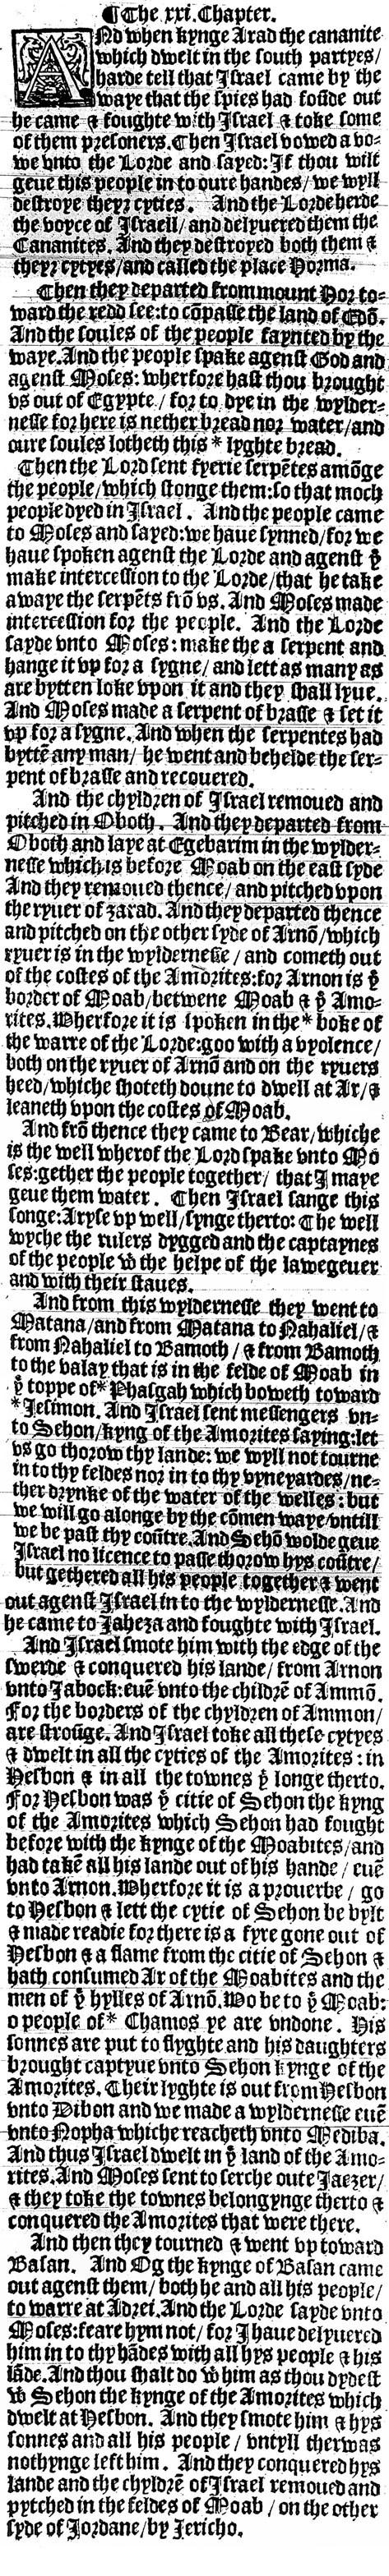 ¶The .xxi. Chapter.
ANd when kynge Arad the cananite
which dwelt in the south partyes/
harde tell that Israel came by the
waye that the spies had foũde out
he came & foughte with Israel & toke some
of them presoners. Then Israel vowed a vo-
we vnto the Lorde and sayed: If thou wilt
geue this people in to oure handes/ we wyll
destroye theyr cyties. And the Lorde herde
the voyce of Israell/ and delyuered them the
Cananites. And they destroyed both them &
theyr cytyes/ and called the place Horma.
Then they departed from mount Hor to-
ward the redd see: to cõpasse the land of Edõ.
And the soules of the people faynted by the
waye. And the people spake agenst God and
agenst Moses: wherfore hast thou brought
vs out of Egypte/ for to dye in the wylder-
nesse for here is nether bread nor water/ and
oure soules lotheth this * lyghte bread.
Then the Lord sent fyerie serpẽtes amõge
the people/ which stonge them: so that moch
people dyed in Israel. And the people came
to Moses and sayed: we haue synned/ for we
haue spoken agenst the Lorde and agenst ẙ
make intercession to the Lorde/ that he take
awaye the serpẽts frõ vs. And Moses made
intercession for the people. And the Lorde
sayde vnto Moses: make the a serpent and
hange it vp for a sygne/ and lett as many as
are bytten loke vpon it and they shall lyue.
And Moses made a serpent of brasse & set it
vp for a sygne. And when the serpentes had
byttẽ any man/ he went and behelde the ser-
pent of brasse and recouered.
And the chyldren of Israel remoued and
pitched in Oboth. And they departed from
Oboth and laye at Egebarim in the wylder-
nesse which is before Moab on the east syde
And they remoued thence/ and pitched vpon
the ryuer of zarad. And they departed thence
and pitched on the other syde of Arnõ/ which
ryuer is in the wyldernesse/ and cometh out
of the costes of the Amorites: for Arnon is ẙ
border of Moab/ betwene Moab & ẙ Amo-
rites. Wherfore it is spoken in the * boke of
the warre of the Lorde: goo with a vyolence/
both on the ryuer of Arnõ and on the ryuers
heed/ whiche shoteth doune to dwell at Ar/ &
leaneth vpon the costes of Moab.
And frõ thence they came to Bear/ whiche
is the well wherof the Lord spake vnto Mo
ses: gether the people together/ that I maye
geue them water. Then Israel sange this
songe: Aryse vp well/ synge therto: The well
wyche the rulers dygged and the captaynes
of the people wͭ the helpe of the lawegeuer
and with their staues.
And from this wyldernesse they went to
Matana/ and from Matana to Nahaliel/ &
from Nahaliel to Bamoth/ & from Bamoth
to the valay that is in the felde of Moab in
ẙ toppe of * Phasgah which boweth toward
* Jesimon. And Israel sent messengers vn-
to Sehon/ kyng of the Amorites saying: let
vs go thorow thy lande: we wyll not tourne
in to thy feldes nor in to thy vyneyardes/ ne-
ther drynke of the water of the welles: but
we will go alonge by the cõmen waye/ vntill
we be past thy coũtre. And Sehõ wolde geue
Israel no licence to passe thorow hys coũtre/
but gethered all his people together & went
out agenst Israel in to the wyldernesse. And
he came to Jaheza and foughte with Israel.
And Israel smote him with the edge of the
swerde & conquered his lande/ from Arnon
vnto Jabock: euẽ vnto the childrẽ of Ammõ.
For the borders of the chyldren of Ammon/
are stroũge. And Israel toke all these cytyes
& dwelt in all the cyties of the Amorites: in
Hesbon & in all the townes ẙ longe therto.
For Hesbon was ẙ citie of Sehon the kyng
of the Amorites which Sehon had fought
before with the kynge of the Moabites/ and
had takẽ all his lande out of his hande/ euẽ
vnto Arnon. Wherfore it is a prouerbe/ go
to Hesbon & lett the cytie of Sehon be bylt
& made readie for there is a fyre gone out of
Hesbon & a flame from the citie of Sehon &
hath consumed Ar of the Moabites and the
men of ẙ hylles of Arnõ. Wo be to ẙ Moab:
o people of * Chamos ye are vndone. His
sonnes are put to flyghte and his daughters
brought captyue vnto Sehon kynge of the
Amorites. Their lyghte is out from Hesbon
vnto Dibon and we made a wyldernesse euẽ
vnto Nopha whiche reacheth vnto Mediba.
And thus Israel dwelt in ẙ land of the Amo-
rites. And Moses sent to serche oute Jaezer/
& they toke the townes belongynge therto &
conquered the Amorites that were there.
And then they tourned & went vp toward
Basan. And Og the kynge of Basan came
out agenst them/ both he and all his people/
to warre at Adrei. And the Lorde sayde vnto
Moses: feare hym not/ for I haue delyuered
him in to thy hãdes with all hys people & his
lãde. And thou shalt do wͭ him as thou dydest
wͭ Sehon the kynge of the Amorites which
dwelt at Hesbon. And they smote him & hys
sonnes and all his people/ vntyll ther was
nothynge left him. And they conquered hys
lande and the chyldrẽ of Israel remoued and
pytched in the feldes of Moab/ on the other
syde of Jordane/ by Jericho.